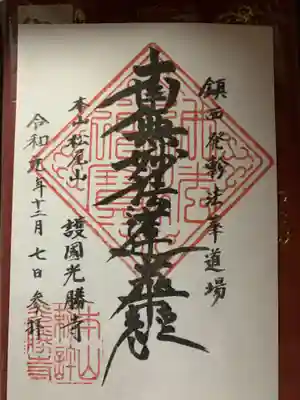 鎮西発軫法華道場
南無妙法蓮華経
本山 松尾山 護國光勝寺
令和元年十二月七日参拝